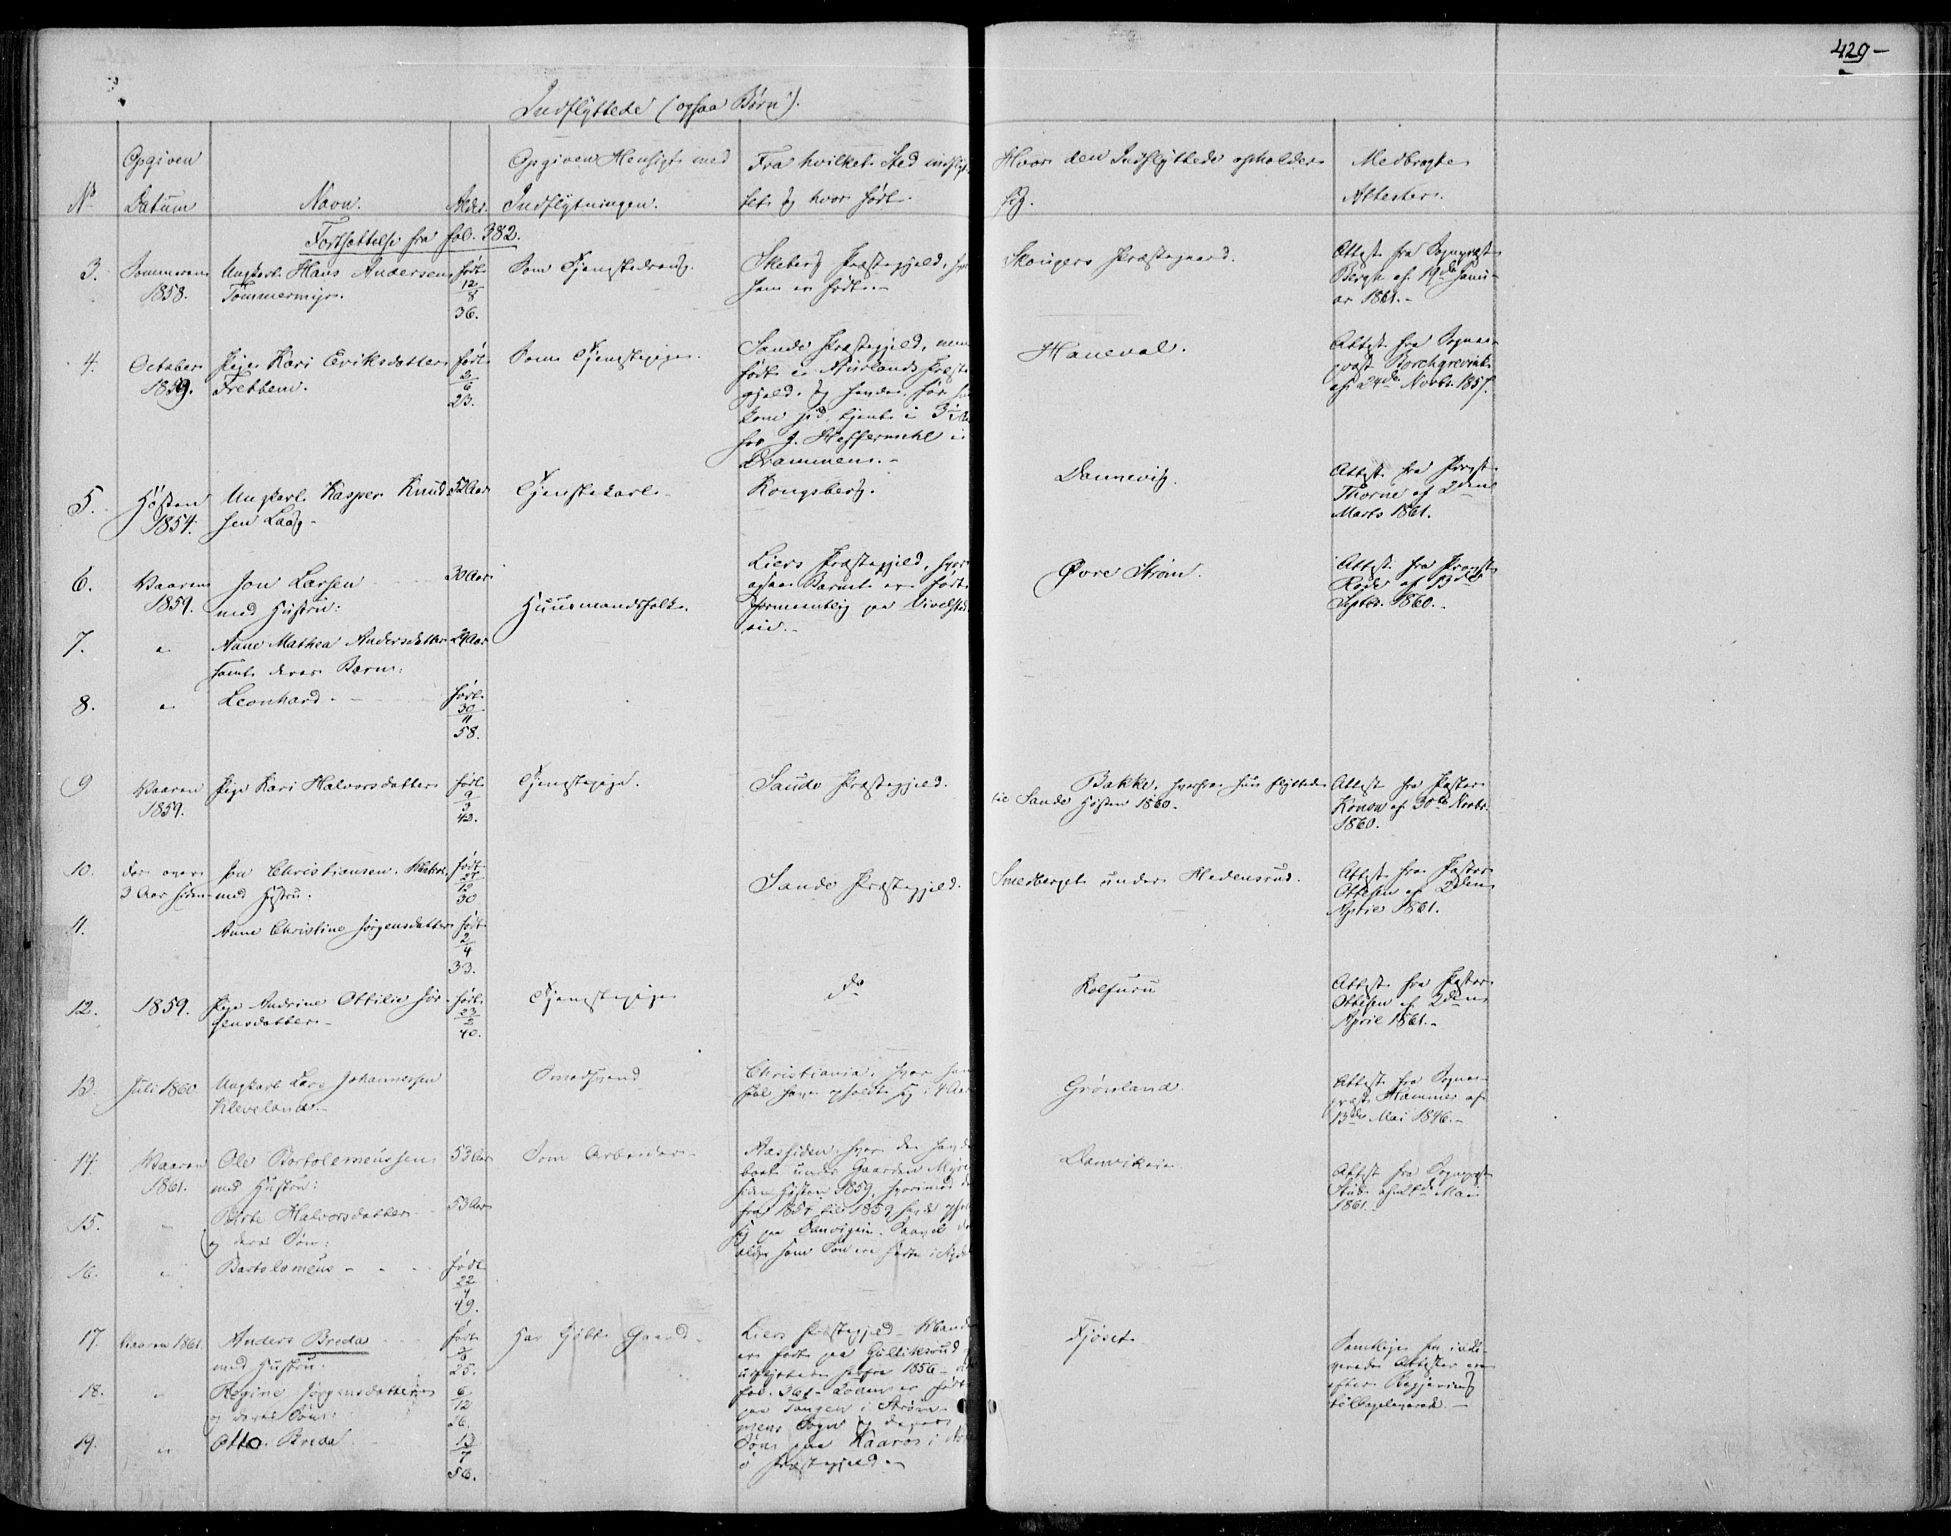 429-
Indflyttede (ogsaa Børn).
No
Opgiven
Datum
Navn.
Alder.
Opgiven Hensigt med
Indflytningen.
Fra hvilket Sted indflyt-
tet og hvor født.
Hvor den Indflyttede opholder
sig.
Medbragte
Attester.
Fortsættelse fra fol. 382.
3.
Sommeren
1858.
Ungkarl Hans Andersen
Tømmermyr.
født
12
8
36.
Som Tjenestedreng.
Præstegjeld,
han er født.-
Skougers Præstegaard.
Attest fra Sognepræst
Berg af 19de Janu-
ar 1861.-
4.
October
1859.
Pige Kari Eriksdatter
Frettem.
født
2
6
23.
Som Tjenestepige.
Sande Præstegjeld, men
født i Aurlands Præste
gjeld, og
kom hid, tjent i 3½ Aar
hos J. Steffermehl i
Drammen.-
Haneval.
Attest fra Sogne-
præst Borchgrevink
af 24de Novbr. 1857.
5.
Høsten
1854.
Ungkarl Kasper Knud-
sen Laag-
52 Aar
Tjenestekarl.
Kongsberg.
Dannevig.
Attest fra Provst
Thorne af 2den
Marts 1861.
6.
Vaaren
1859.
Jon Larsen
med Hustru:
30 Aar
Huusmandsfolk.
Liers Præstegjeld, hvor
ogsaa Barnet er født
formeentlig paa
eie.-
Øvre Strøm.
Attest fra Provst
Rode af 13de
Septbr. 1860.-
7.
"
Anne Mathea Andersdatter
samt deres Barn:
24 Aar
8.
"
Leonhard.-
født
30
11
58.
9
Vaaren
1859.
Pige Kari Halvorsdatter
født
9
3
42.
Tjenestepige.
Sande Præstegjeld.
Bakke, hvorfra hun flyttede
til Sande Høsten 1860.
Attest fra Pastor
Konow af 30te Novbr.
1860.
10.
for over
3 Aar siden
Jon Christiansen,
med Hustru:
født
27
12
30
Sande Præstegjeld.
Smedberget under Hedensrud.
Attest fra Pastor
Ottesen af 2den
April 1861.
11.
Anne Christine Jørgensdatter
født
2
4
33.
12.
1859.
Pige Andrine Ottilie Jør-
gensdatter-
født
23
2
40.
Tjenestepige
do
Kolfuru
Attest fra Pastor
Ottesen af 2den
April 1861.-
13.
Juli 1860
Ungkarl Lars Johannessen
Kleveland.-
Smedsvend
Christiania, hvor han
skal have opholdt sig i 4 Aar
Grønland
Attest fra Sogne-
præst Hammer af
13de Mai 1846.-
14.
Vaaren
1861.
Ole Bartolomeussen
med Hustru:
53 Aar
Som Arbeider
Aassiden, hvor de havde
boet under Gaarden Myre
siden Høsten 1859, hvorimod de
fra 1857 til 1859 havde ophol
sig paa Danvigeie. Saavel
som Søn ere født i
Danvikeie
Attest fra Sognepræst
Mai
1861.
15.
"
Berte Halvorsdatter
og deres Søn:
53 Aar
16.
"
Bartolomeus
født
22
4
49.
17.
Vaaren 1861.
Anders Breda
med Hustru:
født
25.
Har kjøbt Gaard.
Liers Præstegjeld - Manden
er født paa Gulliksrud
udflyttede herfra 1856-
fol. 361. Konen er født
paa Tangen i Strøm-
mens Sogn og deres
Søn paa Kaarøs i
Præstegjeld.-
Fjøset.
Samtlige
Attester ere
efter Begjæring
tilbageleverede.-
18.
"
Regine Jørgensdatter
og deres Søn:
6
12
26.
19.
"
Otto Breda
13
7
56.